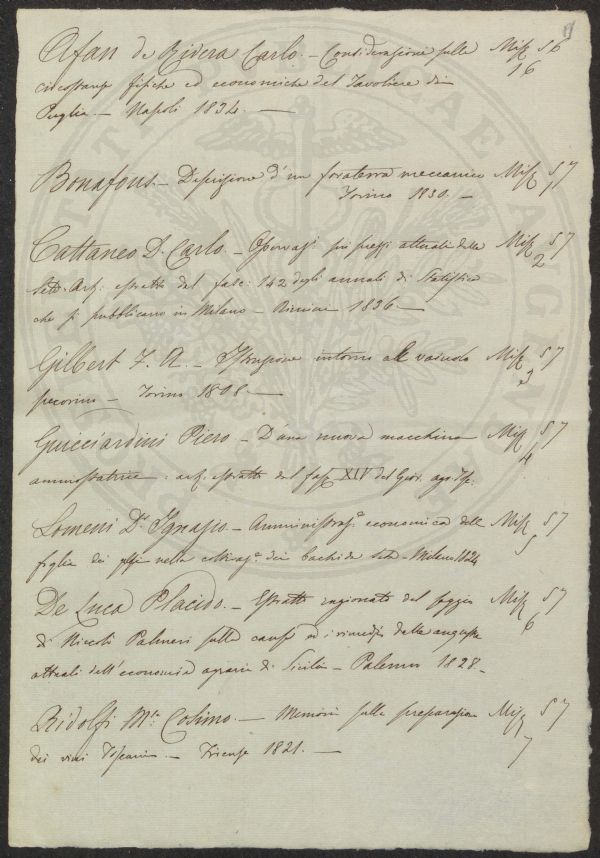 Afan de Rivera Carlo. – Considerazione sulle Misz 56
circostanze fisiche ed economiche del Tavoliere di 16
Puglia. – Napoli 1834. –
Bonafous. – Descrizione d'un foraterra meccanico Misz 57
Torino 1830. – 1
Cattaneo D. Carlo. – Osservazi. sui prezzi attuali delle Misz 57
Sete. Art: estratto dal fasc: 142 degli annali di Statistica 2
che si pubblicano in Milano – 1836. –
Gilbert F. A. – Istruzione intorno al vaiuolo Misz 57
pecorino – Torino 1808. – 3
Guicciardini Piero – D'una nuova macchina Misz 57
ammostatrice: art. estratto del fasc XIV del Gior. agr. 4
Lomeni Dr. Ignazio. – Amministraz.e economica della Misz 57
foglia dei gelsi nella dei Bachi da Seta – Milano 1824 5
De Luca Placido. – Estratto ragionato del saggio Misz 57
di Niccolò Palmeri sulle cause ed i rimedj delle angustie 6
attuali dell'economia agraria di Sicilia – Palermo 1828. –
Ridolfi Mse. Cosimo. – Memoria sulla preparazione Misz 57
dei vini Toscani. – Firenze 1821. – 7